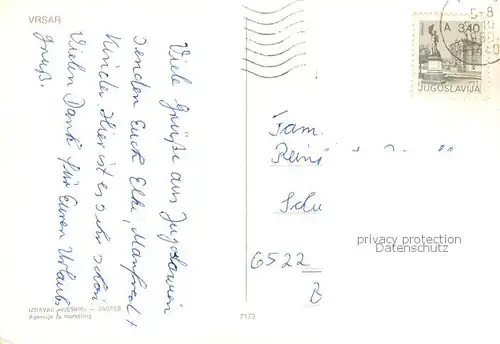 VRSAR
Viele Grüße aus Jugoslawien
senden Euch Elke, Manfred +
Kinder. Hier ist es sehr schön.
Vielen Dank für Euren Urlaubs
gruß.
IZDAVAČ »VJESNIK« — ZAGREB
Agencija za marketing
7173
5-8
A 3,40
JUGOSLAVIJA
Fam.
Rein
Schu
6522
privacy protection
Datenschutz